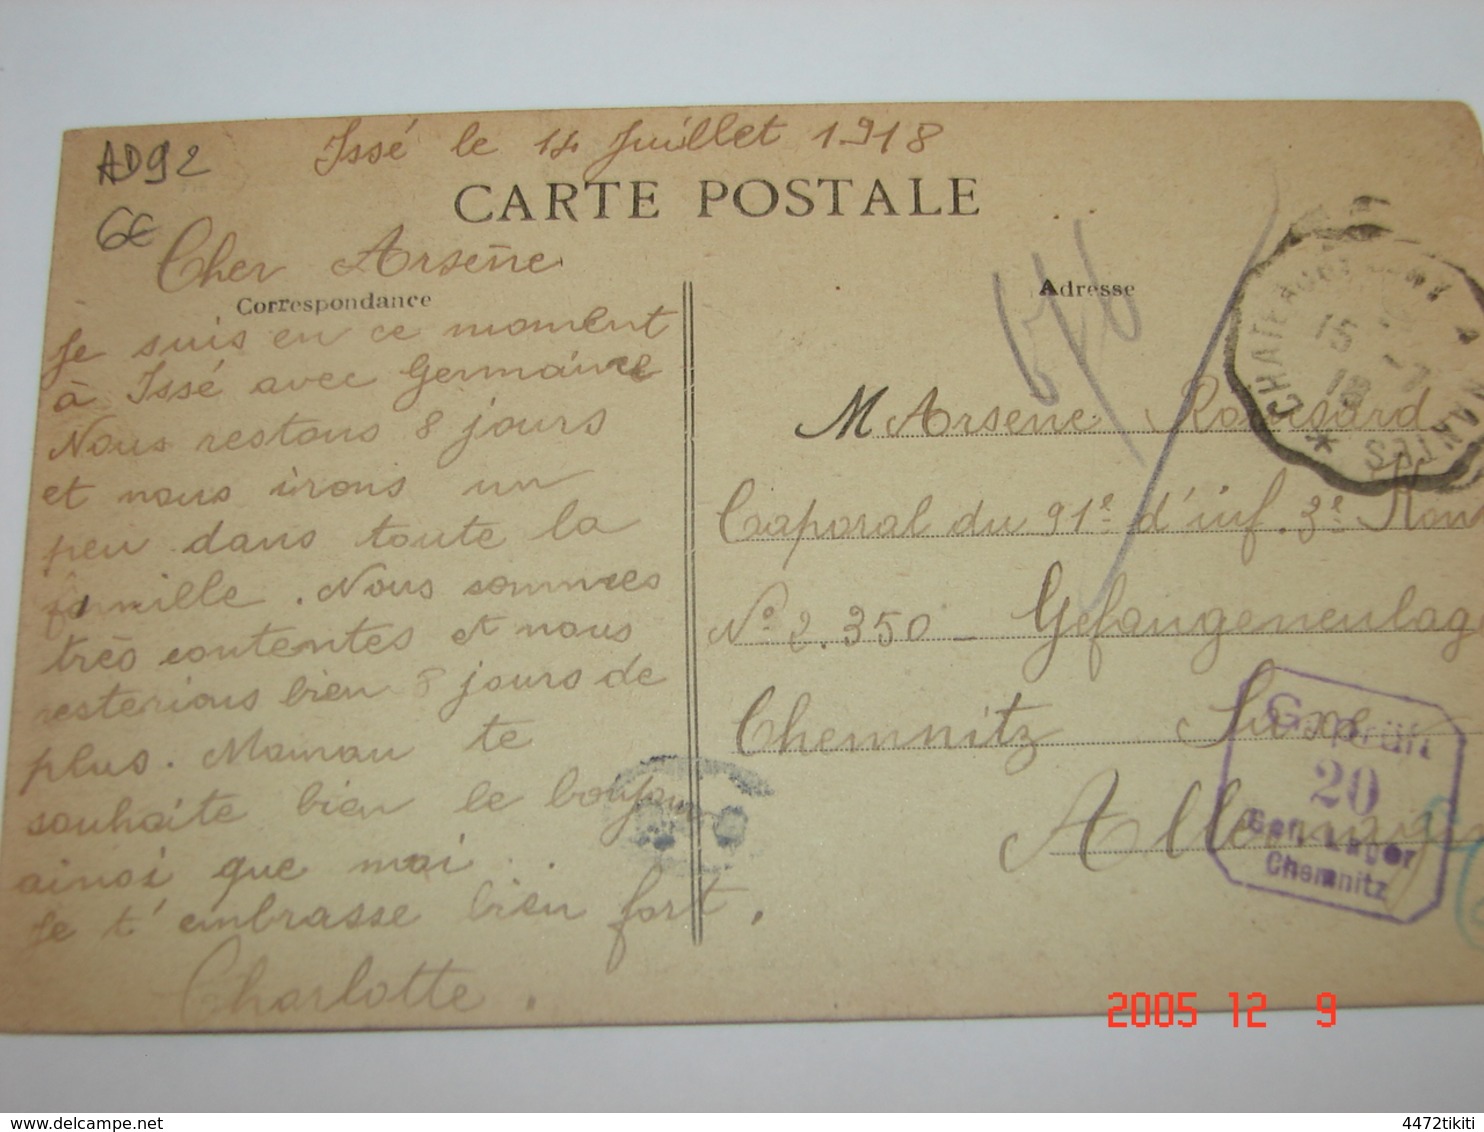 AD92
6€
Issé le 14 Juillet 1918
CARTE POSTALE
Cher Arsène
Correspondance
Je suis en ce moment
à Issé avec Germaine
Nous restons 8 jours
et nous irons un
peu dans toute la
famille. Nous sommes
très contentes et nous
resterions bien 8 jours de
plus. Maman te
souhaite bien le bonjour
ainsi que moi..
Je t'embrasse bien fort.
Charlotte.
Adresse
M Arsene
Caporal du 91e d'inf. 3e
No 2.350 - Gefangenenlag
Chemnitz Saxe
Allemagne
* CHATEAUBRIANT A NANTES
15 -7
18
Geprüft
20
Gef. Lager
Chemnitz
2005 12 9
www.delcampe.net
4472tikiti